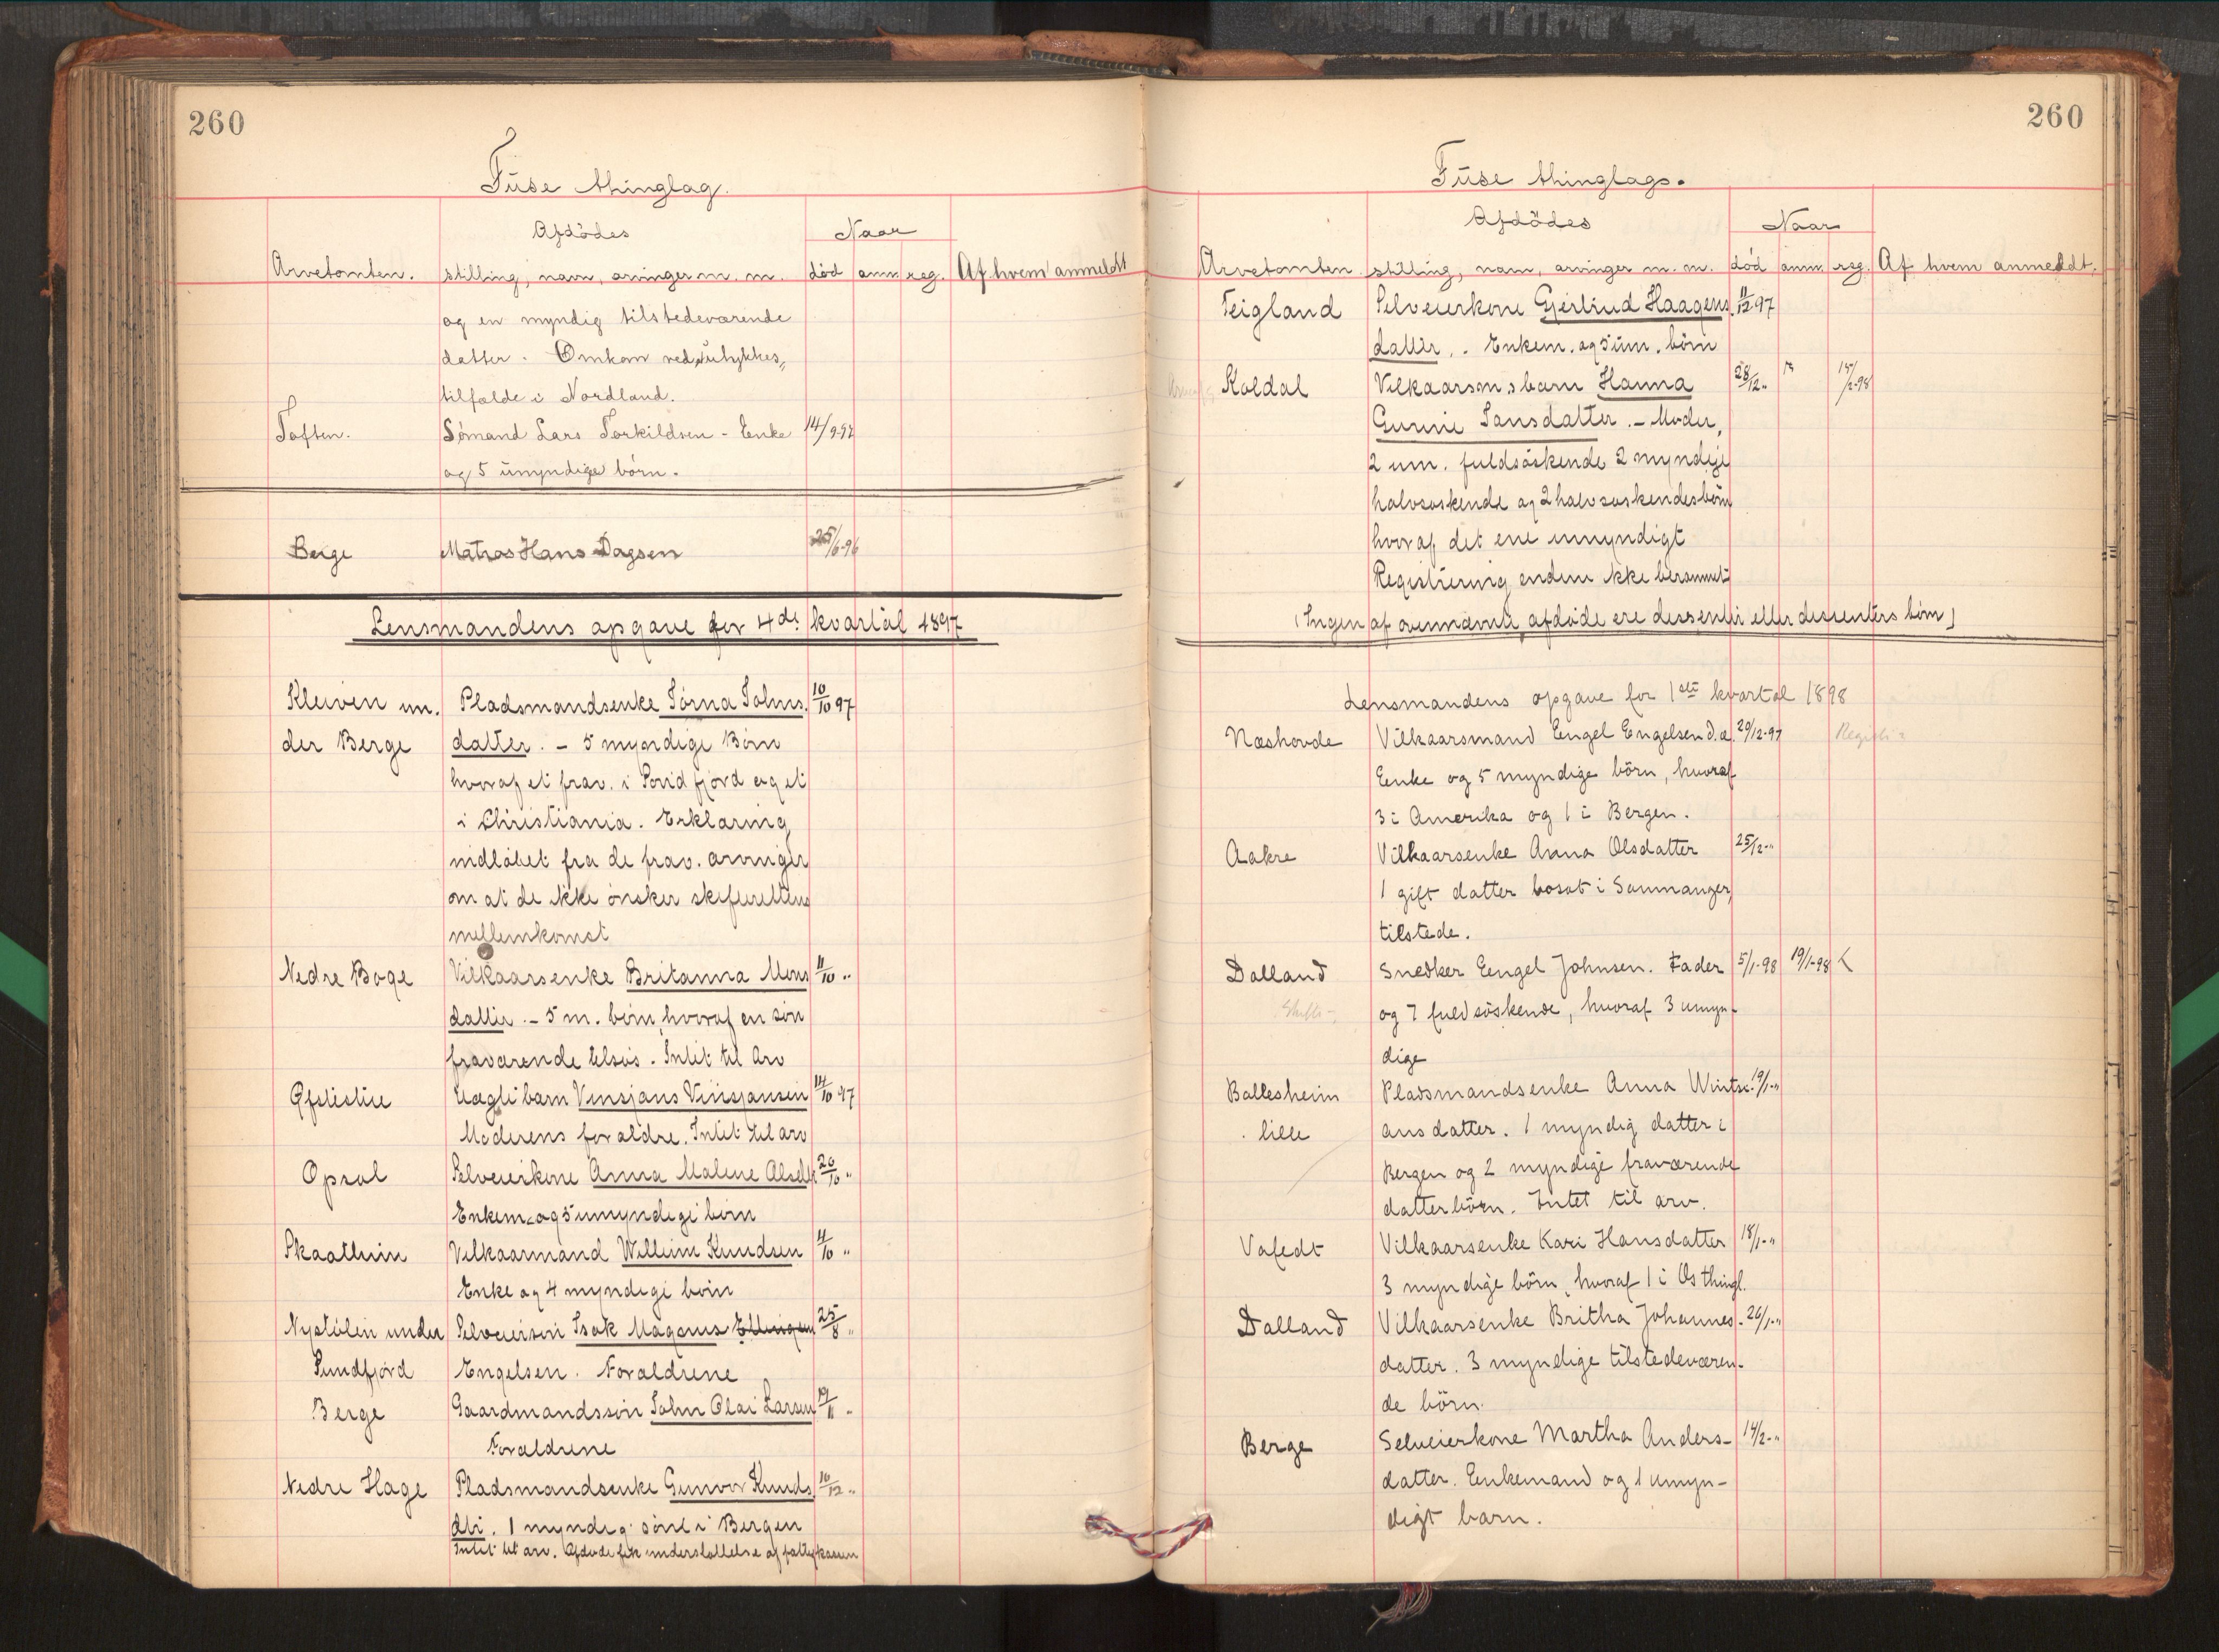 260
Fuse thinglag.
Afdödes
Naar
Arvetomten.
stilling, navn, arvinger m. m.
död
anm.
reg.
Af hvem anmeldt
og en myndig tilstedeværende
datter. Omkom ved ulykkes„
tilfælde i Nordland.
Toften.
Sömand Lars Torkildsen - Enke
14/9-97
og 5 umyndige börn.
Berge
Matros Hans Dagsen
25/6-96
Lensmandens opgave for 4de kvartal 1897
Kleiven un.
Pladsmandsenke Jörna Johns.
10/10 97
der Berge
datter. - 5 myndige Börn
hvoraf et frav. i Söndfjord og et
i Christiania. Erklæring
indløbet fra de frav. arvinger
om at de ikke önsker skifterettens
mellemkomst
Nedre Boge
Vilkaarsenke Britanna Mons
11/10 "
datter. - 5 m. börn, hvoraf en sön
fraværende tilsös. Intet til Arv
Uægte barn Vinsjans Vinsjansen
14/10 97
Moderens forældre. Intet til arv
Opsal
Selveierkone Anna Malene Olsdtr
20/10 "
Enkem. og 5 umyndige börn
Vilkaarmand Willum Knudsen
4/10 "
Enke og 4 myndige börn
Nystölen under
Selveiersön Isak Magnus Ellingsen
25/8 "
Sundfjord
Engelsen. Forældrene
Berge
Gaardmandssön John Olai Larsen
19/11 "
Forældrene
Nedre Hage
Pladsmandsenke Gunvor Knuds
10/12 "
dtr. 1 myndig sön i Bergen
Intet til arv. Afdøde fik understøttelse af fattigkassen
260
Fuse thinglags.
Afdödes
Naar
Arvetomten
stilling, navn, arvinger m. m.
död
anm.
reg.
Af hvem anmeldt.
Teigland
Selveierkone Gjertrud Haagens
11/12 97
datter. . Enkem. og 5 um. börn
Koldal
Vilkaarsm.s barn Hanna
28/12 "
Gurine Jansdatter. - Moder,
2 um. fuldsöskende 2 myndige
halvsøskende og 2 halvsøskendesbörn
hvoraf det ene umyndigt
Registrering endnu ikke berammet
(Ingen af ovennævnte afdøde ere dissenter eller dissenters børn)
Lensmandens opgave for 1ste kvartal 1898
Næshovde
Vilkaarsmand Engel Engelsen d.æ.
29/12-97
Enke og 5 myndige börn, hvoraf
3 i Amerika og 1 i Bergen.
Aakre
Vilkaarsenke Anna Olsdatter
25/12-"
1 gift datter bosat i Sammanger,
tilstede.
Dalland
Snedker Engel Johnsen. Fader
5/1-98
19/1-98
og 7 fuldsöskende, hvoraf 3 umyn-
dige
Ballesheim
Pladsmandsenke Anna Wintsi-
19/1-"
lille
ansdatter. 1 myndig datter i
Bergen og 2 myndige fraværende
datterbörn. Intet til arv.
Vilkaarsenke Kari Hansdatter
18/1-"
3 myndige börn, hvoraf 1 i Os thingl.
Dalland
Vilkaarsenke Britha Johannes-
26/1-"
datter. 3 myndige tilstedeværen-
de börn.
Berge
Selveierkone Martha Anders-
14/2-"
datter. Enkemand og 1 umyn-
digt barn.